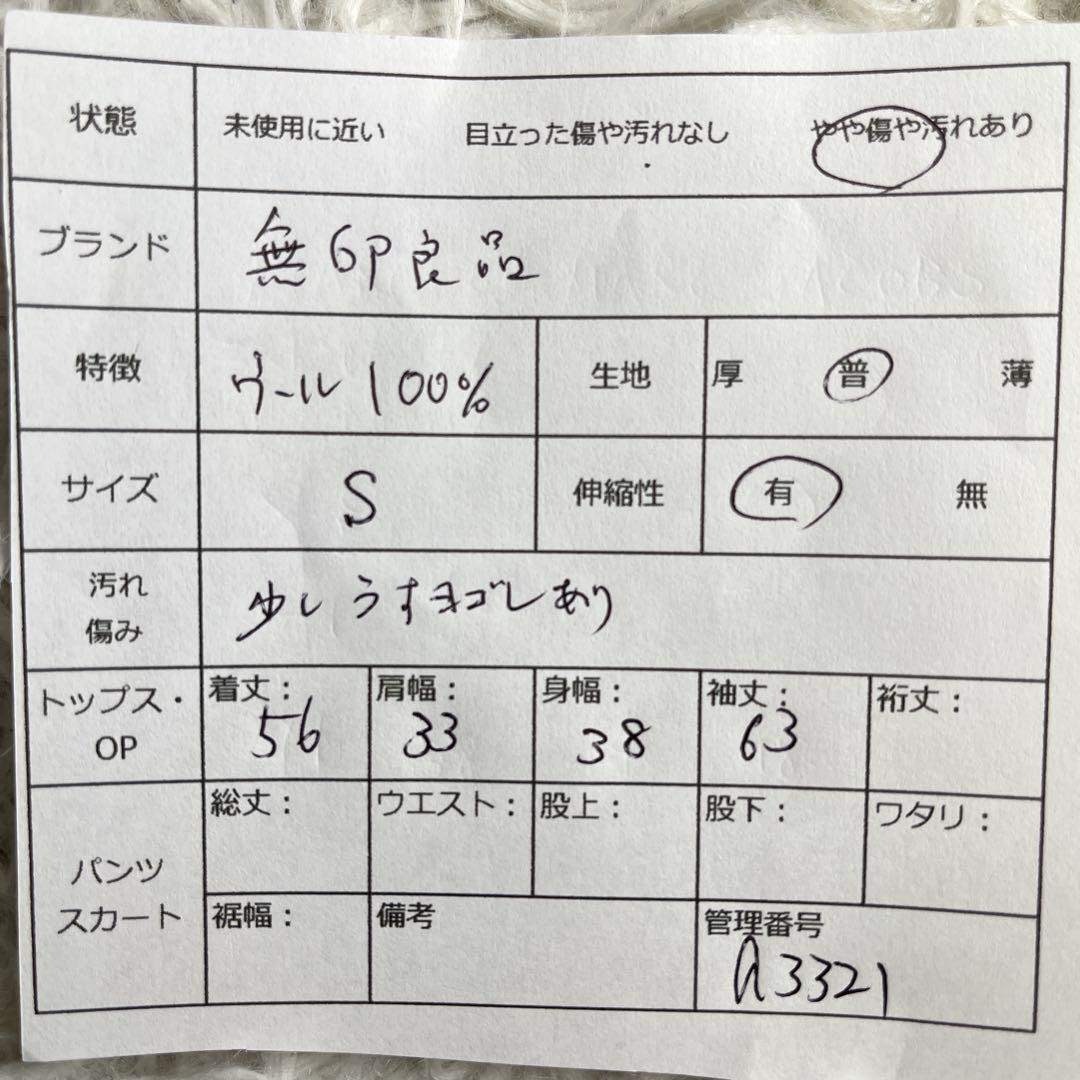 状態 未使用に近い 目立った傷や汚れなし やや傷や汚れあり
ブランド 無印良品
特徴 ウール100% 生地 厚 普 薄
サイズ S 伸縮性 有 無
汚れ
傷み
少しうすヨゴレあり
トップス・
OP
着丈： 肩幅： 身幅： 袖丈： 裄丈：
56 33 38 63
パンツ
スカート
総丈： ウエスト： 股上： 股下： ワタリ：
裾幅： 備考 管理番号
a3321